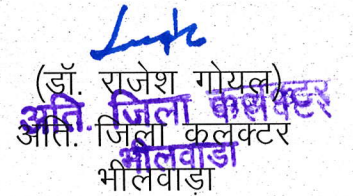 (डॉ. राजेश गोयल)
अति. जिला कलक्टर
अति. जिला कलक्टर
भीलवाडा
भीलवाड़ा